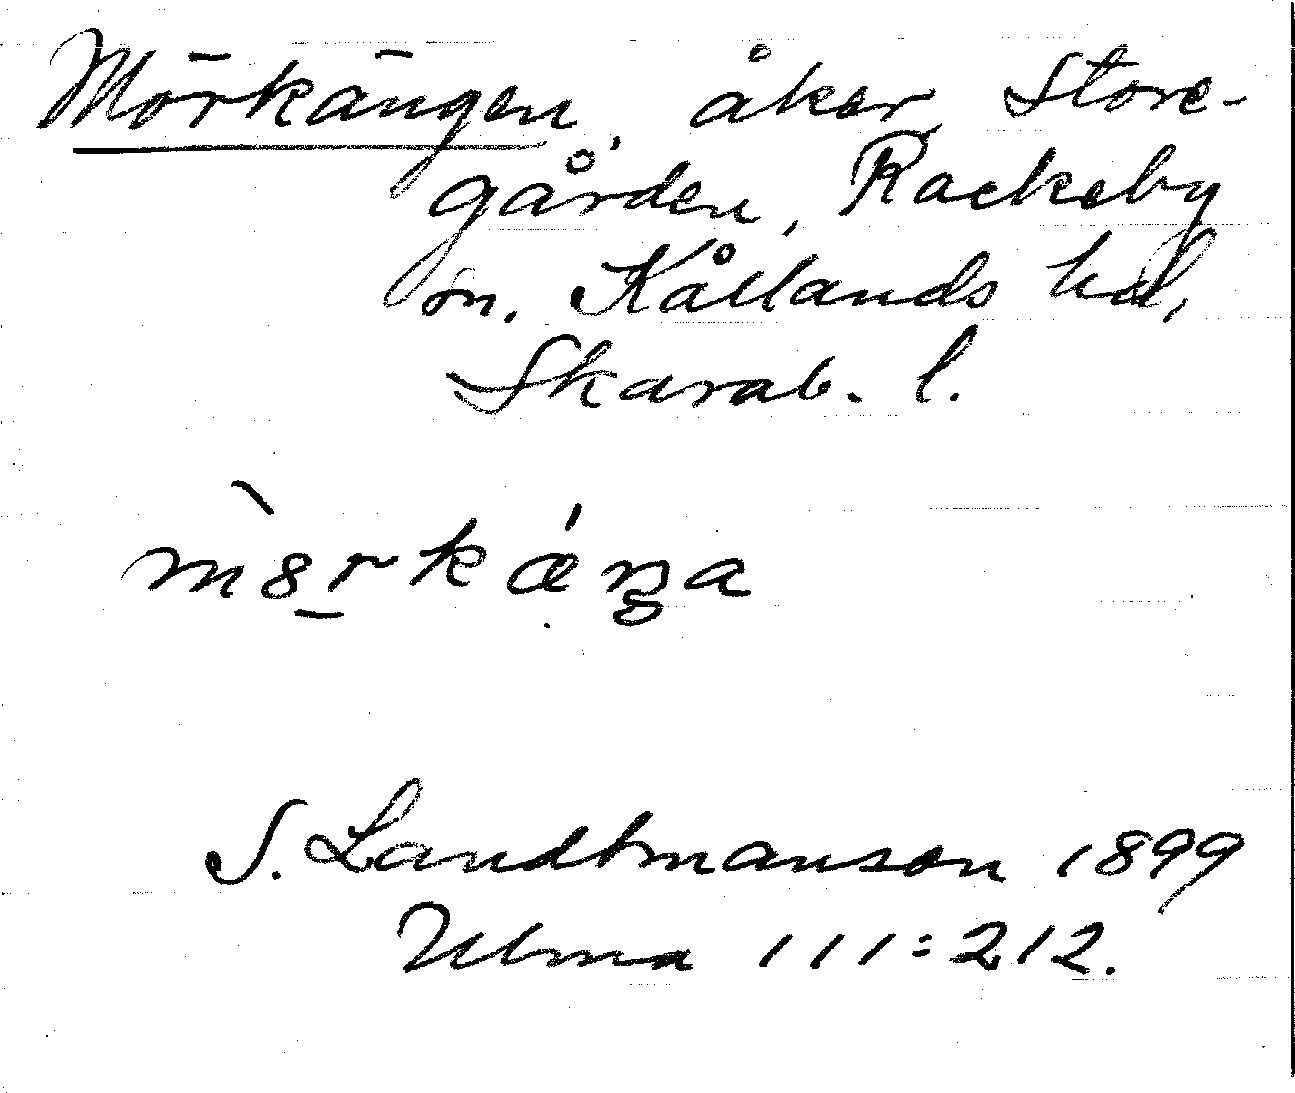 Mörkängen, åker, Store-
gården, Rackeby
sn. Kållands hd,
Skarab. l.
S. Landtmanson 1899
Ulma 111:212.